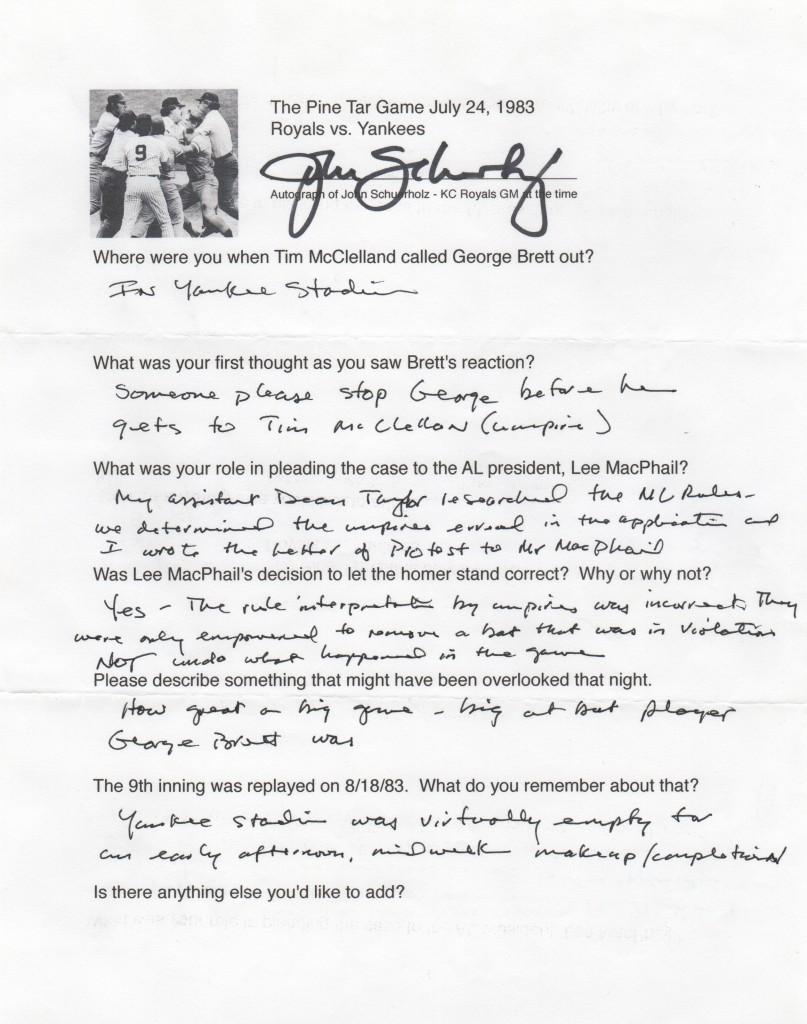 9
The Pine Tar Game July 24, 1983
Royals vs. Yankees
John Schuerholz
Autograph of John Schuerholz - KC Royals GM at the time
Where were you when Tim McClelland called George Brett out?
In Yankee Stadium
What was your first thought as you saw Brett's reaction?
Someone please stop George before he
gets to Tim McClellan (umpire)
What was your role in pleading the case to the AL president, Lee MacPhail?
My assistant Dean Taylor researched the ML Rules -
we determined the umpires erred in the application and
I wrote the Letter of Protest to Mr MacPhail
Was Lee MacPhail's decision to let the homer stand correct? Why or why not?
Yes - The rule interpretation by umpires was incorrect. They
were only empowered to remove a bat that was in violation
NOT undo what happened in the game
Please describe something that might have been overlooked that night.
How great a big game - big at bat player
George Brett was
The 9th inning was replayed on 8/18/83. What do you remember about that?
Yankee Stadium was virtually empty for
an early afternoon, midweek makeup/completion
Is there anything else you'd like to add?